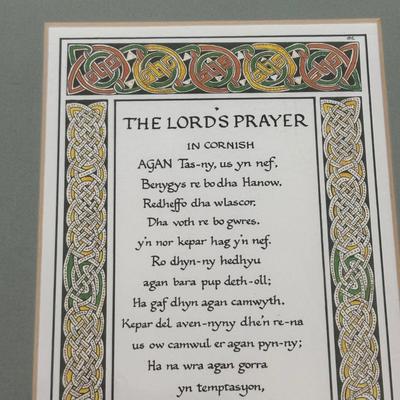 THE LORD'S PRAYER
IN CORNISH
AGAN Tas-ny, us yn nef,
Benygys re bo dha Hanow.
Redheffo dha wlascor,
Dha voth re bo gwres.
y'n nor kepar hag y'n nef.
Ro dhyn-ny hedhyu
agan bara pup deth-oll;
Ha gaf dhyn agan camwyth.
Kepar del aven-nyny dhe'n re-na
us ow camwul er agan pyn-ny;
Ha na wra agan gorra
yn temptasyon,